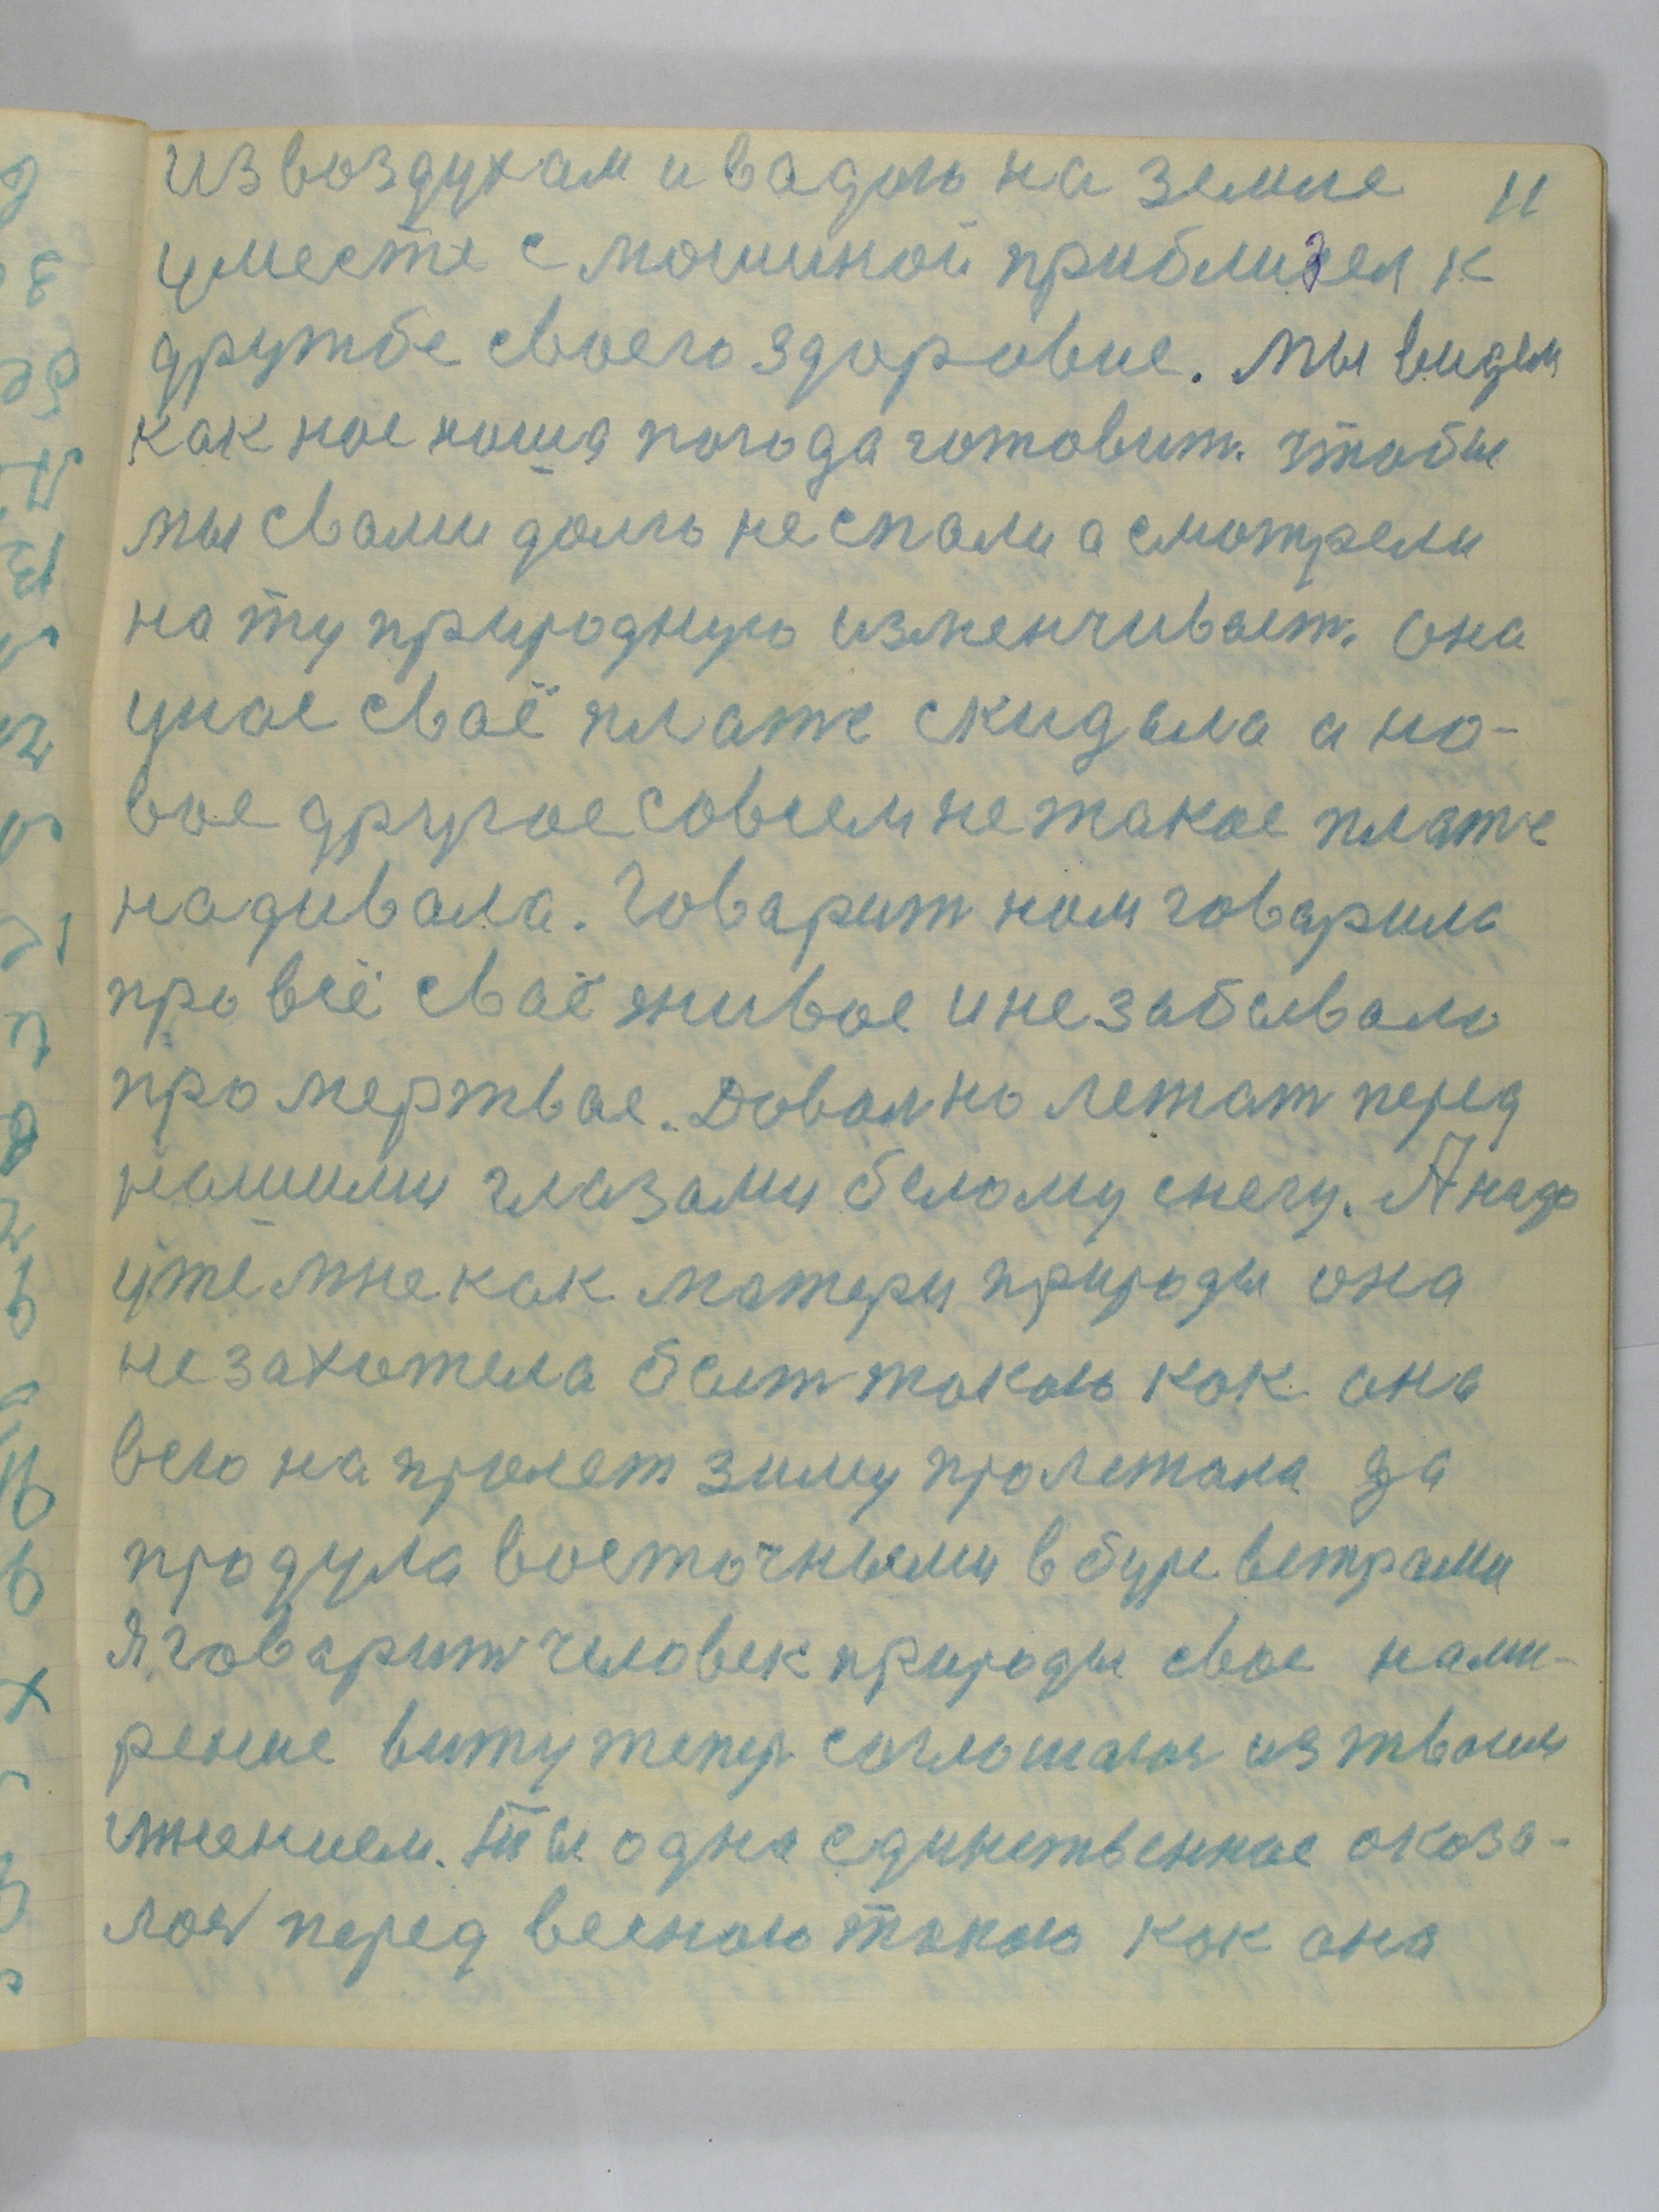 из воздухам и вадою на земле 11
уместе с мошиной приблизел к
дружбе своего здоровие. мы видем
как нас наша погода готовит. чтобы
мы свами долго не спали а смотрели
на ту природную изменчивает. она
унас сваё плате скидала а но-
вое другое совсем не такое плате
надивала. Говарит нам говарила
про всё сваё живое и не забывала
про мертвае. Доволно летат перед
нашими глазами белому снегу. А надо
уже мне как матери природы она
незахотела быт такою как она
всю напролет зиму пролетала да
продула восточными в буре ветрами
Я говарит человек природы свое нами-
рение виту тепер соглошаюся из твоим
мнением. Ты одна единственное оказа-
лося перед весною такою как она